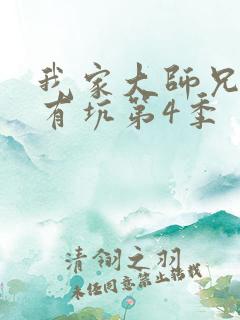 我家大師兄
有坑第4季
清翎之羽
未经同意禁止转载